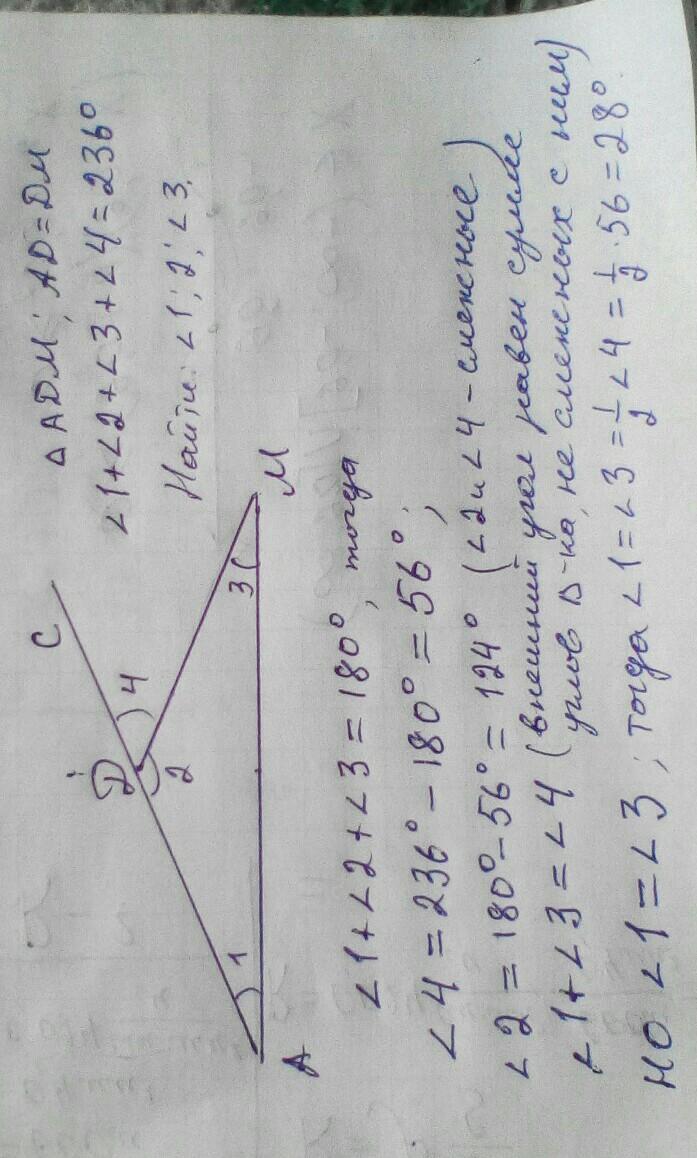 △ ADM; AD = DM
∠1+∠2+∠3+∠4=236°
Найти: ∠1; 2; ∠3.
C
D
4
2
1
3
A
M
∠1+∠2+∠3=180°, тогда
∠4=236°-180°=56°;
∠2=180°-56°=124° (∠2 и ∠4 - смежные)
∠1+∠3=∠4 (внешний угол равен сумме
углов △-ка, не смежных с ним)
но ∠1=∠3; тогда ∠1=∠3=1/2∠4=1/2·56=28°.